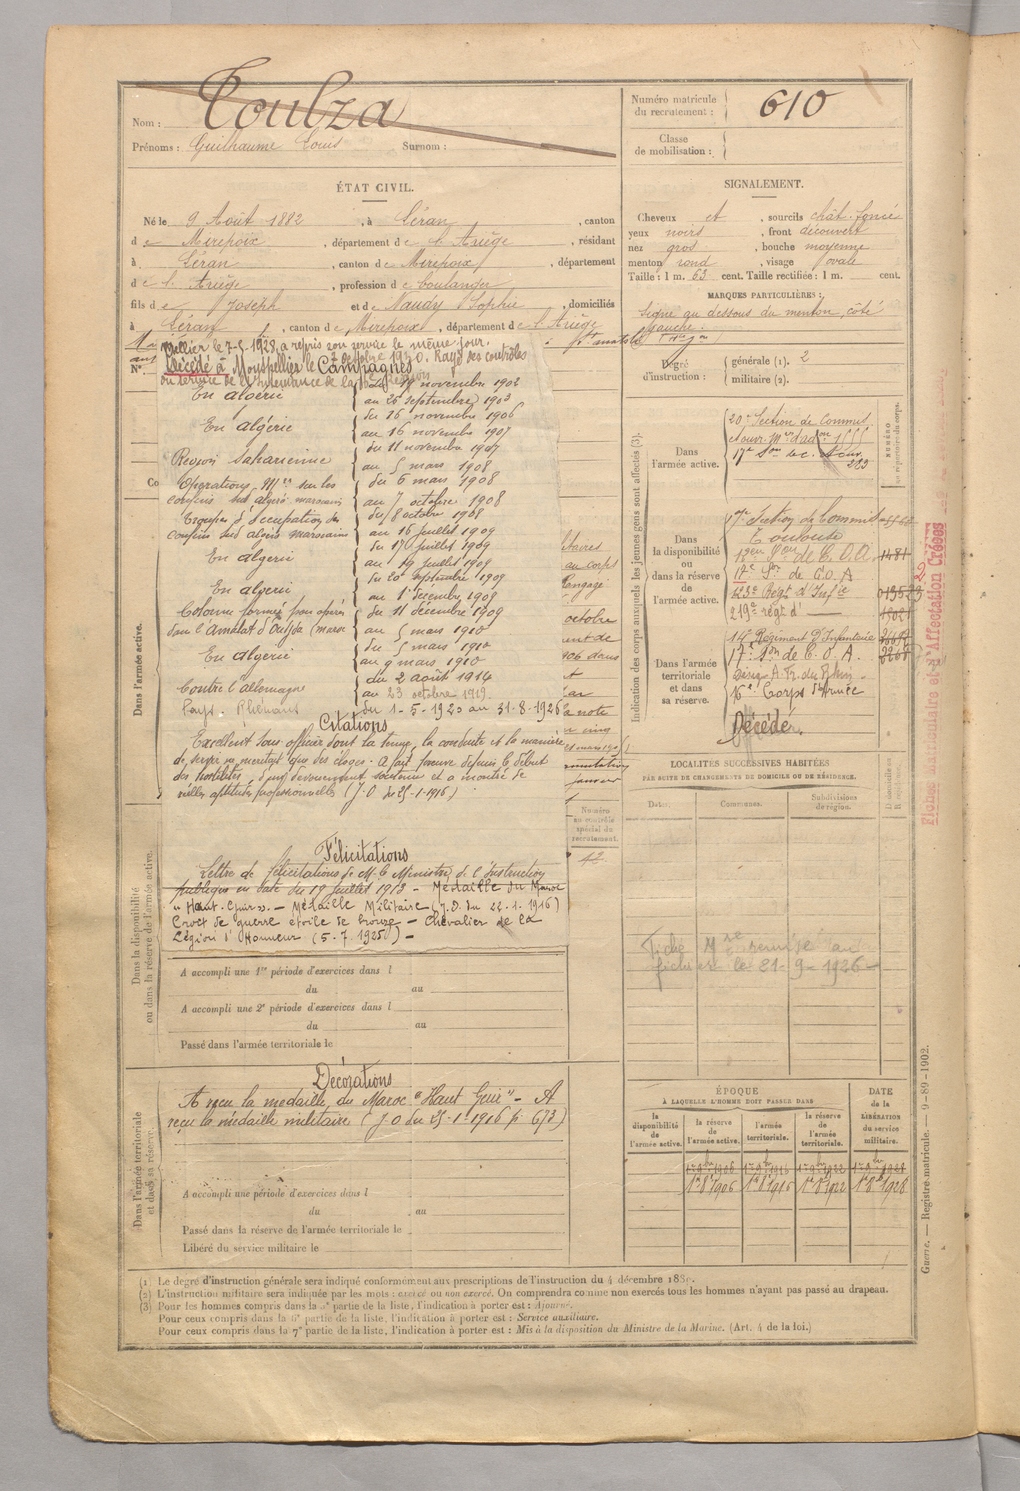 Nom : Toulza
Prénoms : Guilhaume Louis Surnom :
Numéro matricule du recrutement : 610
Classe de mobilisation :
ÉTAT CIVIL.
Né le 9 Août 1882, à Léran, canton
de Mirepoix, département de l'Ariège, résidant
à Léran, canton de Mirepoix, département
de l'Ariège, profession de boulanger
fils de Joseph et de Naudy Sophie, domiciliés
à Léran, canton de Mirepoix, département de l'Ariège
SIGNALEMENT.
Cheveux et, sourcils chât. foncé
yeux noirs, front découvert
nez gros, bouche moyenne
menton rond, visage ovale
Taille : 1 m. 63 cent. Taille rectifiée : 1 m. cent.
MARQUES PARTICULIÈRES :
Signe au dessous du menton, côté
gauche.
Degré d'instruction : générale (1). 2
militaire (2).
pellier le 7-5-1928, a repris son service le même jour.
Décédé à Montpellier le 7 octobre 1930. Rayé des contrôles
Campagnes
En algérie
novembre 1902
au 26 septembre 1903
En algérie
du 16 novembre 1906
au 16 novembre 1907
Région saharienne
du 11 novembre 1907
au 5 mars 1908
Opérations Mres sur les
confins sud algéro marocains
du 6 mars 1908
au 7 octobre 1908
Troupes d'occupation des
confins sud algéro marocains
du 8 octobre 1908
au 16 juillet 1909
En algérie
du 17 juillet 1909
au 19 juillet 1909
En algérie
du 20 septembre 1909
au 1er décembre 1909
Colonne formée pour opérer
dans l'Amalat d'Oudjda (maroc
du 11 décembre 1909
au 5 mars 1910
En algérie
du 5 mars 1910
au 9 mars 1910
Contre l'allemagne
du 2 août 1914
au 23 octobre 1919.
Pays Rhénans du 1-5-1920 au 31-8-1926
Citations
Excellent sous-officier dont la tenue, la conduite et la manière
de servir ne méritent que des éloges. A fait preuve depuis le début
des hostilités, d'un dévouement soutenu et a montré de
réelles aptitudes professionnelles (J.O du 25-1-1916)
Félicitations
Lettre de félicitations de M. le Ministre de l'Instruction
publique en date du 18 juillet 1913 - Médaille du Maroc
"Haut-Guir". - Médaille Militaire (J.O. du 22.1.1916)
Croix de guerre étoile de bronze - Chevalier de la
Légion d'Honneur (5.7.1925) -
Dans l'armée active.
Dans la disponibilité ou dans la réserve de l'armée active.
A accompli une 1re période d'exercices dans l
du au
A accompli une 2e période d'exercices dans l
du au
Passé dans l'armée territoriale le
Décorations
A reçu la médaille du Maroc "Haut Guir" - A
reçu la médaille militaire (J.O du 25-1-1916 p. 673)
Dans l'armée territoriale et dans sa réserve.
A accompli une période d'exercices dans l
du au
Passé dans la réserve de l'armée territoriale le
Libéré du service militaire le
Numéro au contrôle spécial du recrutement.
42
Indication des corps auxquels les jeunes gens sont affectés (3).
NUMÉRO
Dans l'armée active.
20e Section de Commis
et ouvr. Mres d'adon
Dans la disponibilité ou dans la réserve de l'armée active.
17e Section de Commis
Toulouse
17e Son de C.O.A
123e Régt d'Infie
219e régt d'
Dans l'armée territoriale et dans sa réserve.
14e Régiment d'Infanterie
17e Son de C.O.A.
16e Corps d'Armée
Décédé.
LOCALITÉS SUCCESSIVES HABITÉES
PAR SUITE DE CHANGEMENTS DE DOMICILE OU DE RÉSIDENCE.
Dates. Communes. Subdivisions de région.
Fiche Mre remise au
fichier le 21-9-1926-
ÉPOQUE
À LAQUELLE L'HOMME DOIT PASSER DANS
DATE de la LIBÉRATION du service militaire.
la disponibilité de l'armée active.
la réserve de l'armée active.
l'armée territoriale.
la réserve de l'armée territoriale.
1er 9bre 1906 1er 9bre 1916 1er 9bre 1922 1er 9bre 1928
1er 8bre 1906 1er 8bre 1916 1er 8bre 1922 1er 8bre 1928
Guerre. — Registre-matricule. — 9-89-1902.
(1) Le degré d'instruction générale sera indiqué conformément aux prescriptions de l'instruction du 4 décembre 1889.
(2) L'instruction militaire sera indiquée par les mots : exercé ou non exercé. On comprendra comme non exercés tous les hommes n'ayant pas passé au drapeau.
(3) Pour les hommes compris dans la 5e partie de la liste, l'indication à porter est : Ajourné.
Pour ceux compris dans la 6e partie de la liste, l'indication à porter est : Service auxiliaire.
Pour ceux compris dans la 7e partie de la liste, l'indication à porter est : Mis à la disposition du Ministre de la Marine. (Art. 4 de la loi.)